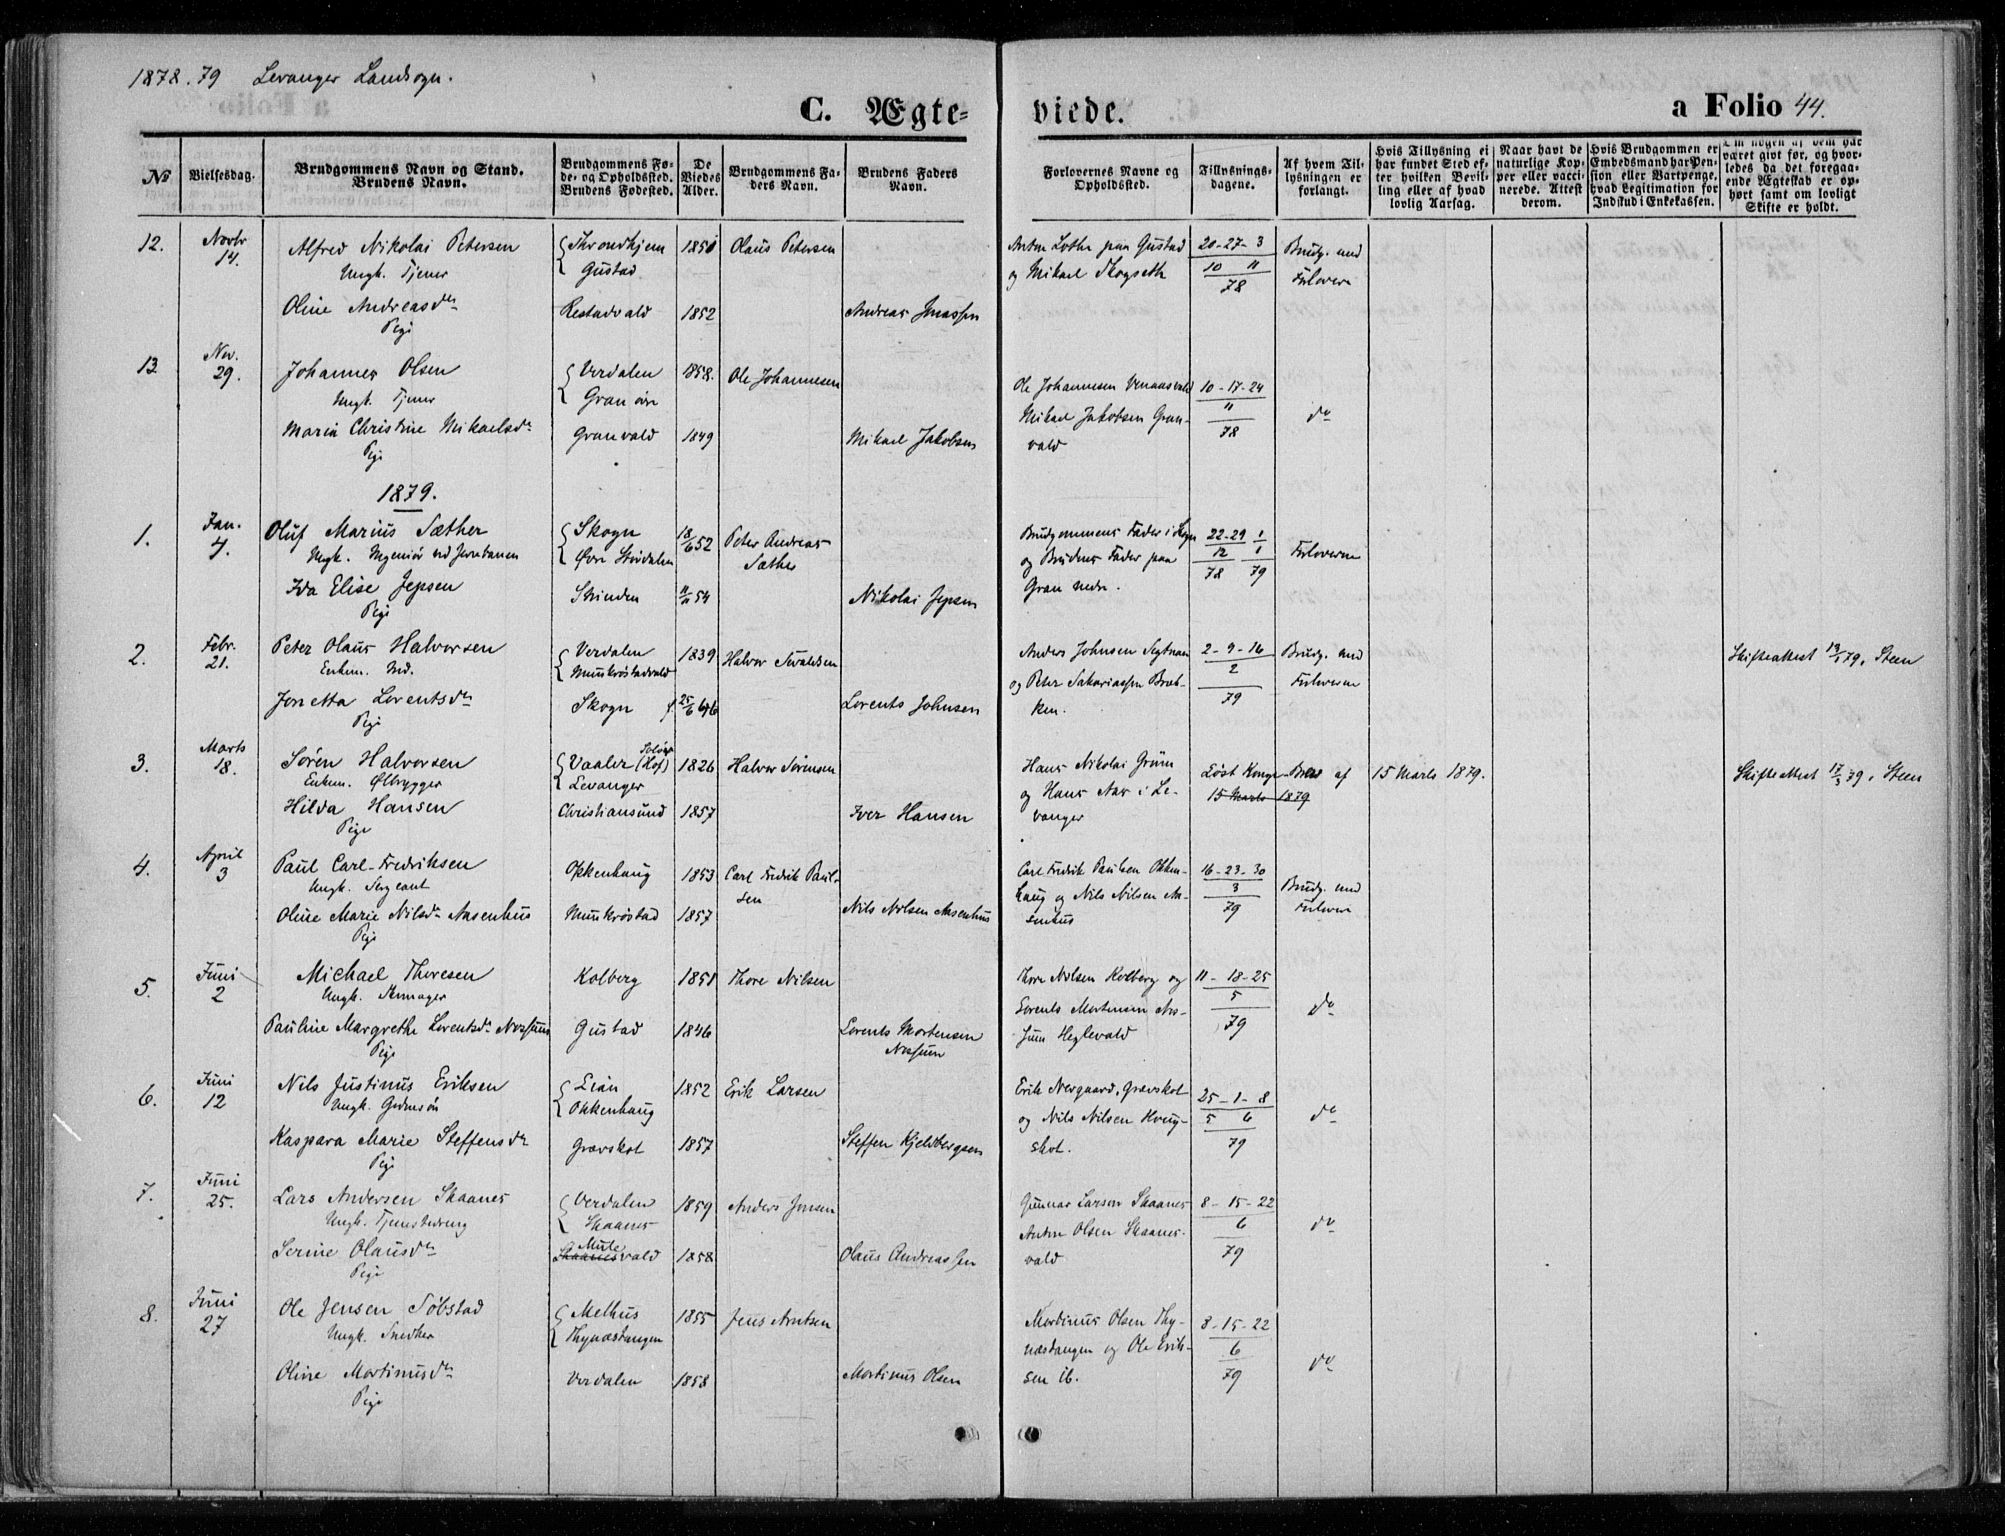 1878.79 Levanger Landsogn.
C. Ægteviede. a Folio 44.
No
Vielsesdag.
Brudgommens Navn og Stand.
Brudens Navn.
Brudgommens Føde- og Opholdssted.
Brudens Fødested.
De Viedes Alder.
Brudgommens Faders Navn.
Brudens Faders Navn.
Forlovernes Navne og Opholdssted.
Tillysningsdagene.
Af hvem Tillysningen er forlangt.
Hvis Tillysning ei har fundet Sted efter hvilken Bevilling eller af hvad lovlig Aarsag.
Naar havt de naturlige Kopper eller vaccinerede. Attest derom.
Hvis Brudgommen er Embedsmand har Pension eller Vartpenge, hvad Legitimation for Indskud i Enkekassen.
Om nogen af dem har været givt før, og hvorledes da det foregaaende Ægteskab er ophørt samt om lovligt Skifte er holdt.
12. Novbr 14. Alfred Nikolai Petersen { Throndhjem 1850 Olaus Petersen
Ungk. Tjener { Gustad
Anton Lothe paa Gustad og Mikael Skogseth
20-27-3
10 11
78
Brudg. med Forlovere
Oline Andreasdr Restadvald 1852 Andreas Jonassen
Pige
13. Nov. 29. Johannes Olsen { Verdalen 1858. Ole Johannesen
Ungk. Tjener { Gran øvre
Ole Johannesen
Mikael Jakobsen Granvald
10-17-24
11
78
do
Maria Christine Mikaelsdr Granvald 1849 Mikael Jakobsen
Pige
1879.
1. Jan. 4. Oluf Marius Sæther { Skogn 18/6 52 Peter Andreas Sæther
Ungk. Ingeniør ved Jernbanen { Øvre Stördalen
Brudgommens Fader i Skogn og Brudens Fader paa Gran nedre.
22-29 1
12 1
78 79
Forloverne
Ida Elise Jepsen Strinden 11/11 54 Nikolai Jepsen
Pige
2. Febr. 21. Peter Olaus Halvorsen { Verdalen 1839 Halvor Sivaldsen
Enkem. Md. { Munkrøstadvald
Anders Johnsen Segtnan og Peter Sakariassen Bræken.
2-9-16
2
79
Brudg. med Forloverne
Skifteattest 13/1 79, Steen
Jonetta Lorentsdr Skogn 25/6 46 Lorents Johnsen
Pige
3. Marts 18. Søren Halvorsen { Vaaler (Hof) Solør 1826 Halvor Sörensen
Enkem. Ølbrygger { Levanger
Hans Nikolai Grönn og Hans Aas i Levanger
Løst Konge-Brev af
15 Marts 1879
15 Marts 1879.
Skifteattest 17/3 79, Steen
Hilda Hansen Christiansund 1857 Iver Hansen
Pige
4. April 3 Paul Carl-Fredriksen Okkenhaug 1853 Carl Fredrik Paulsen
Ungk. Sergeant
Carl Fredrik Paulsen Okkenhaug og Nils Nilsen Aasenhus
16-23-30
3
79
Brudg. med Forlovere
Oline Marie Nilsdr Aasenhus Munkröstad 1857 Nils Nilsen Aasenhus
Pige
5. Juni 2 Michael Thoresen Kolberg 1851 Thore Nilsen
Ungk. Skomager
Thore Nilsen Kolberg og Lorents Mortensen Nossum Heglevald
11-18-25
5
79
do
Pauline Margrethe Lorentsdr Nossum Gustad 1846 Lorents Mortensen Nossum
Pige
6. Juni 12 Nils Justinus Eriksen { Lian 1852 Erik Larsen
Ungk. Gdmsøn { Okkenhaug
Erik Nergaard, Grævskot og Nils Nilsen Kvigskot.
25-1-8
5 6
79
do
Kaspara Marie Steffensdr Grævskot 1857 Steffen Kjeldbergsen
Pige
7. Juni 25. Lars Andersen Skaanes { Verdalen 1859 Anders Jonsen
Ungk. Tjenestedreng { Skaanes
Gunnar Larsen Skaanes
Anton Olsen Skaanesvald
8-15-22
6
79
do
Serine Olausdr Skaanesvald Mule 1858 Olaus Andreassen
Pige
8. Juni 27 Ole Jensen Søbstad { Melhus 1855 Jens Arntsen
Ungk. Snedker { Thynæstangen
Mortinus Olsen Thynæstangen og Ole Eriksen ib.
8-15-22
6
79
do
Oline Mortinusdr Verdalen 1858 Mortinus Olsen
Pige